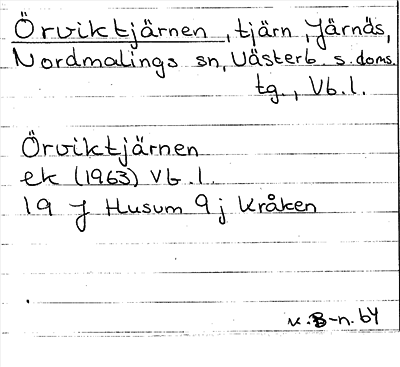 Örviktjärnen, tjärn, Järnäs,
Nordmalings sn, Västerb. s. doms.
tg., Vb. l.
Örviktjärnen
ek (1963) Vb. l.
19 J Husum 9 j Kråken
K. B-n. 64